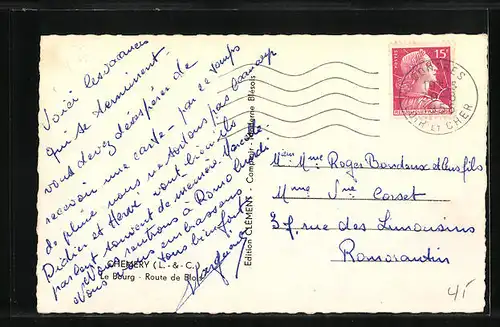 Voici les vacances
qui se terminent -
vous devez désespérer de
recevoir une carte - par ce temps
de pluie nous ne sortons pas beaucoup
Didier et Hervé vont bien ils
parlent souvent de mémère
Nous rentrons à Romo
Nous vous embrassons
tous bien fort
CHEMERY (L.-&-C.)
Le Bourg - Route de Blois
Edition CLEMENT - Blésois
15F
LOIR ET CHER
Mme Roger Bourdoux et les fils
Mme Vve Corset
37, rue des Limousins
Romorantin